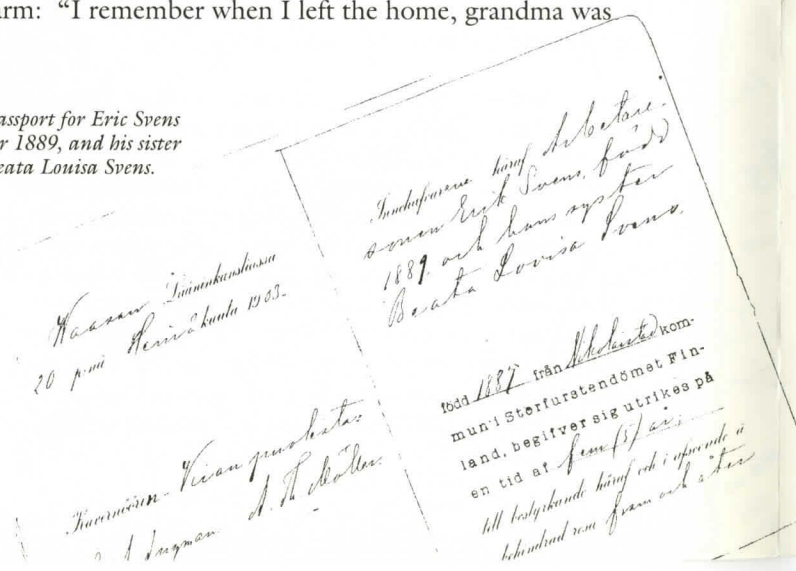 arm: “I remember when I left the home, grandma was
assport for Eric Svens
r 1889, and his sister
eata Louisa Svens.
Waasan Lääninkansliassa
20 p:nä Heinäkuuta 1903.
Kuvernöörin
A. Ingman
Innehafvarene häraf Arbetare-
sonen Erik Svens, född
1889 och hans syster
Beata Lovisa Svens.
född 1887 från Nikolaistad kom-
mun i Storfurstendömet Fin-
land, begifver sig utrikes på
en tid af fem (5) år;
till bestyrkande häraf och i afseende å
behindrad resa fram och åter